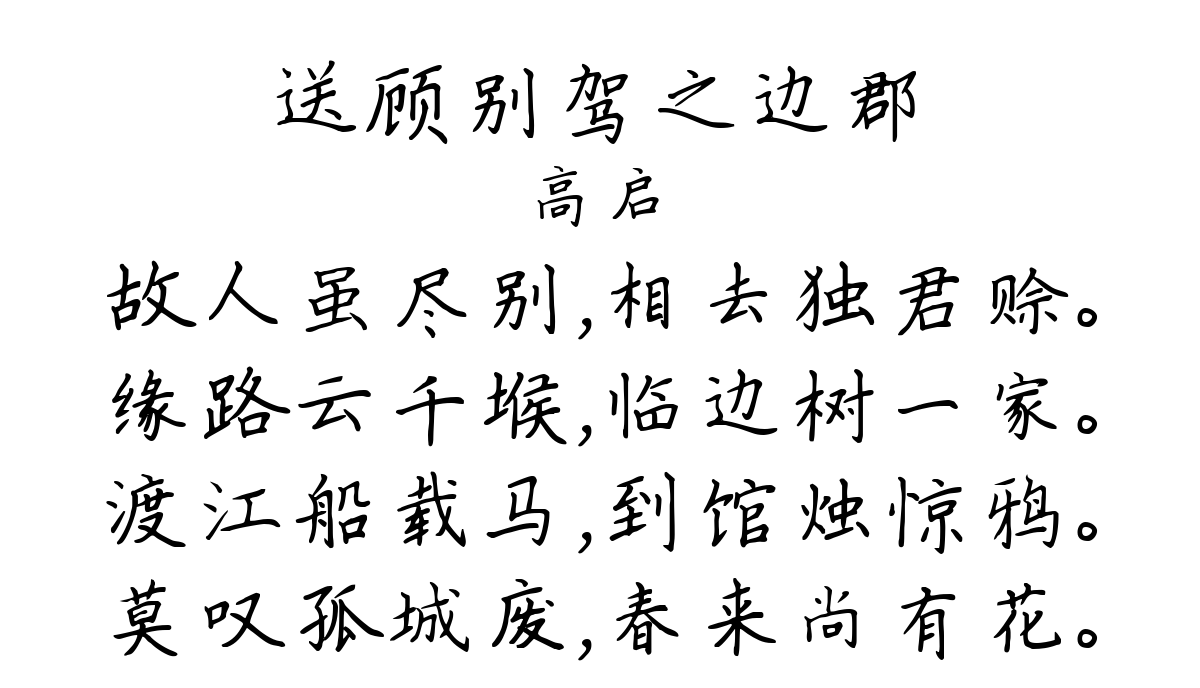 送顾别驾之边郡
高启
故人虽尽别,相去独君赊。
缘路云千堠,临边树一家。
渡江船载马,到馆烛惊鸦。
莫叹孤城废,春来尚有花。